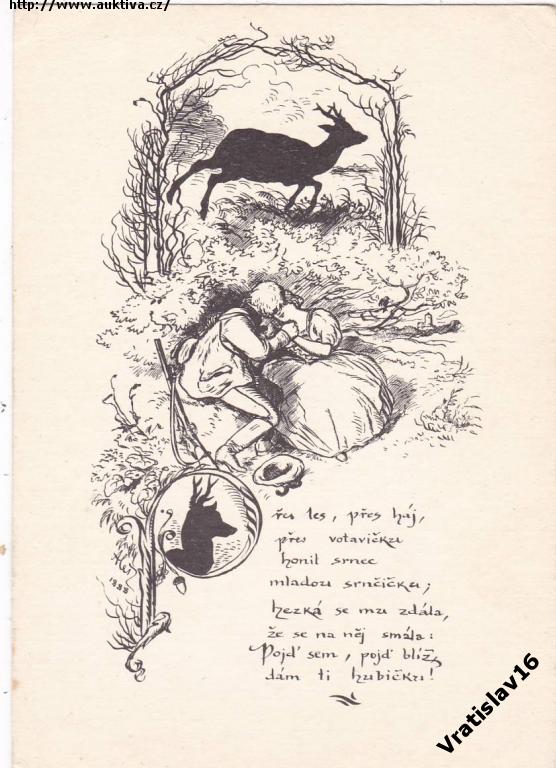 http://www.auktiva.cz/
Přes les, přes háj,
přes votavičku
honil srnec
mladou srnčičku;
hezká se mu zdála,
že se na něj smála:
Pojď sem, pojď blíž,
dám ti hubičku!
1933
Vratislav16